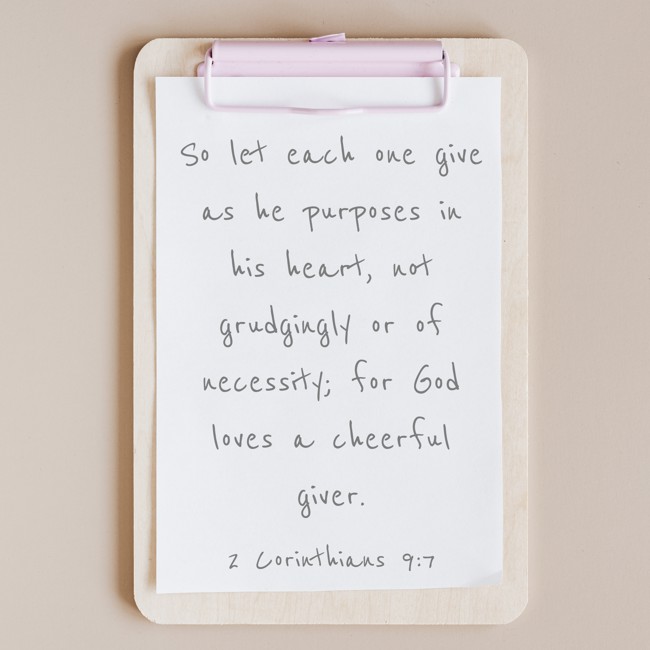 So let each one give
as he purposes in
his heart, not
grudgingly or of
necessity; for God
loves a cheerful
giver.
2 Corinthians 9:7